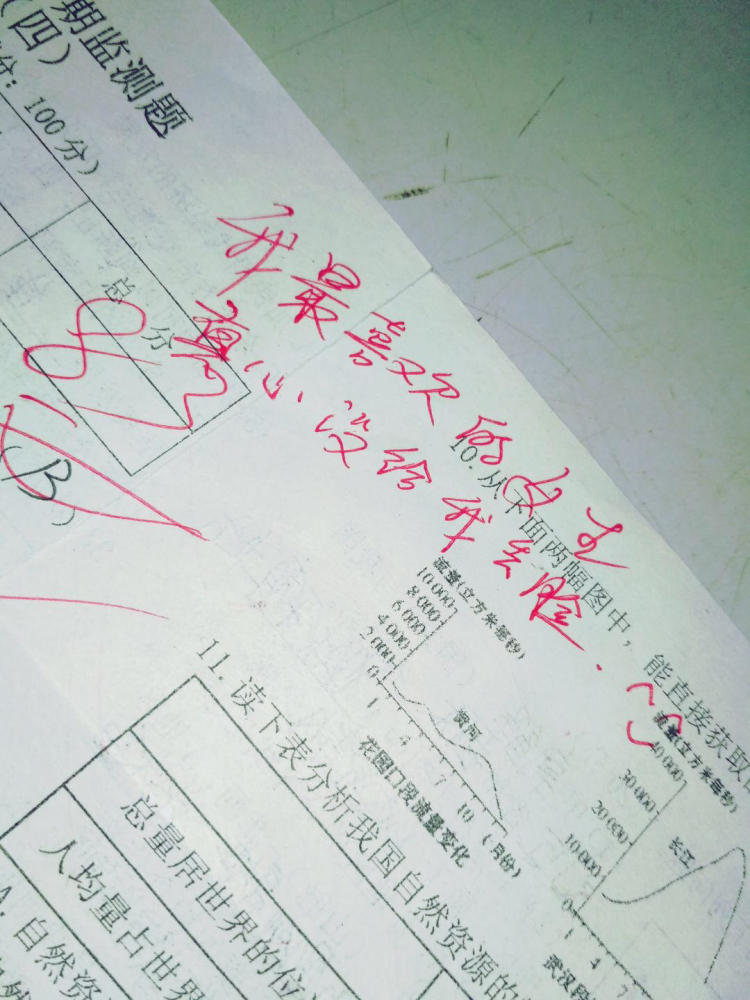 期监测题
(四)
分：100分)
总分
87
我最喜欢的女生
真心没给我丢脸.
B)
10.从下面两幅图中，能直接获取
流量(立方米每秒)
10 000
8 000
6 000
4 000
2 000
0
1 4 7 10 (月份)
黄河
花园口段流量变化
流量(立方米每秒)
40 000
30 000
20 000
10 000
0
1 4 7
长江
武汉段
11.读下表分析我国自然资源的
总量居世界的位
人均量占世界
A.自然资